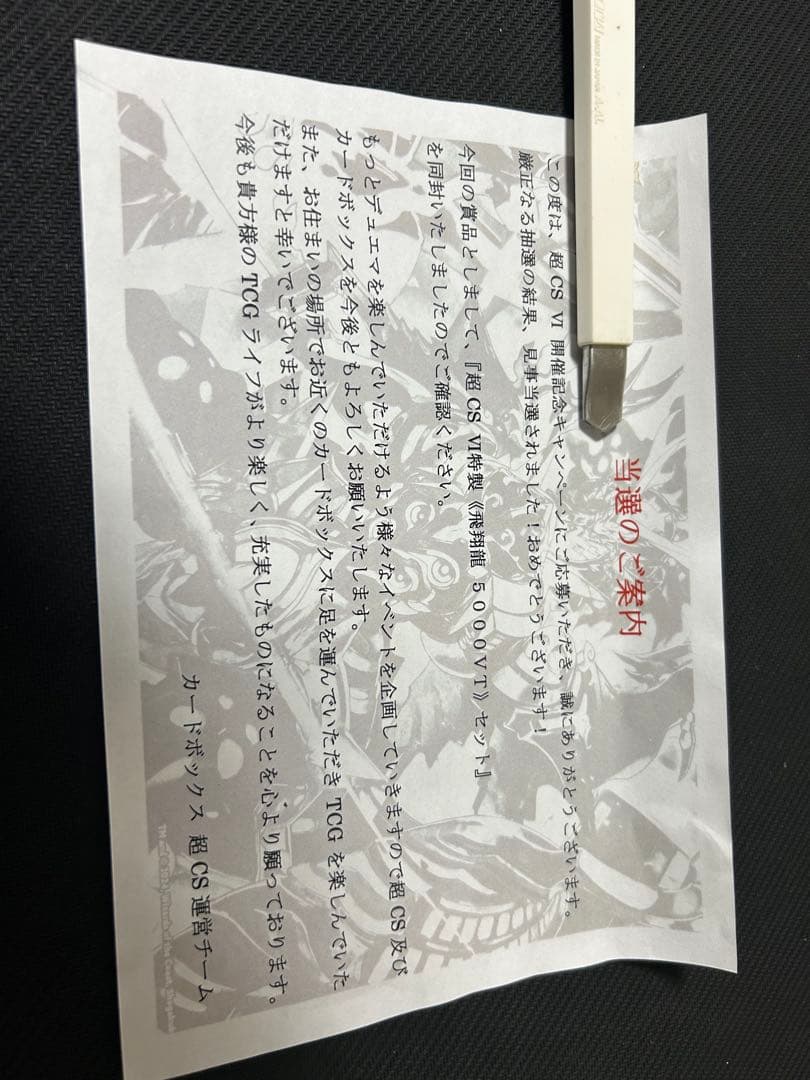 当選のご案内
この度は、超CS Ⅵ 開催記念キャンペーンにご応募いただき、誠にありがとうございます。
厳正なる抽選の結果、見事当選されました！おめでとうございます！
今回の賞品としまして、『超CS Ⅵ特製《飛翔龍 5000VT》セット』
を同封いたしましたのでご確認ください。
もっとデュエマを楽しんでいただけるよう様々なイベントを企画していきますので超CS及び
カードボックスを今後ともよろしくお願いいたします。
また、お住まいの場所でお近くのカードボックスに足を運んでいただきTCGを楽しんでいた
だけますと幸いでございます。
今後も貴方様のTCGライフがより楽しく、充実したものになることを心より願っております。
カードボックス 超CS運営チーム